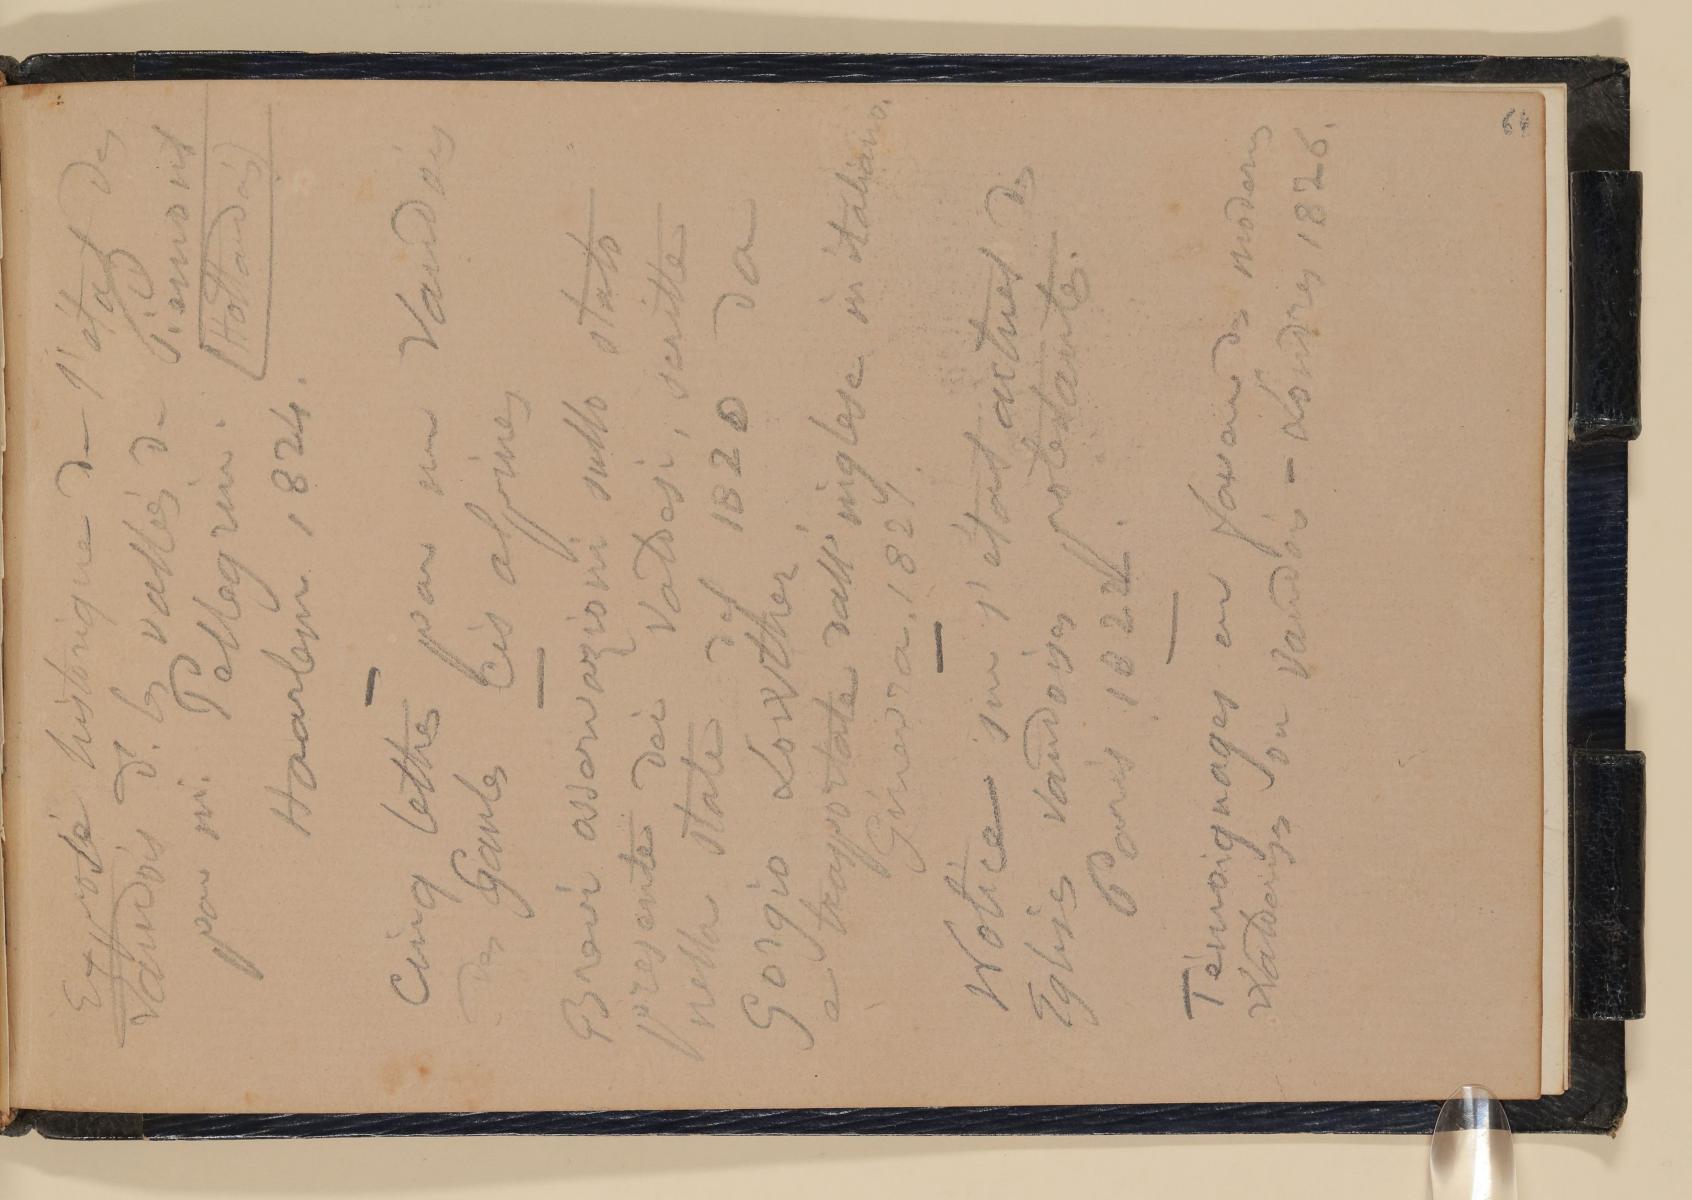 Exposé historique de l'état des
Vaudois d. les vallées de Piémont
par m. Pellegrini. Hollandais
Haarlem 1824.
Cinq lettres par un Vaudois
des Gaules Cis alpines
Brevi osservazioni sullo stato
presente dei Valdesi, scritte
nella state del 1820 da
Gorgio Lowther
e trasportate dall' inglese in italiano.
Ginevra. 1821.
Notice sur l'état actuel des
Eglises vaudoises protestantes.
Paris 1822.
Témoignages en faveur des modernes
Waldenses ou Vaudois - Londres 1826.